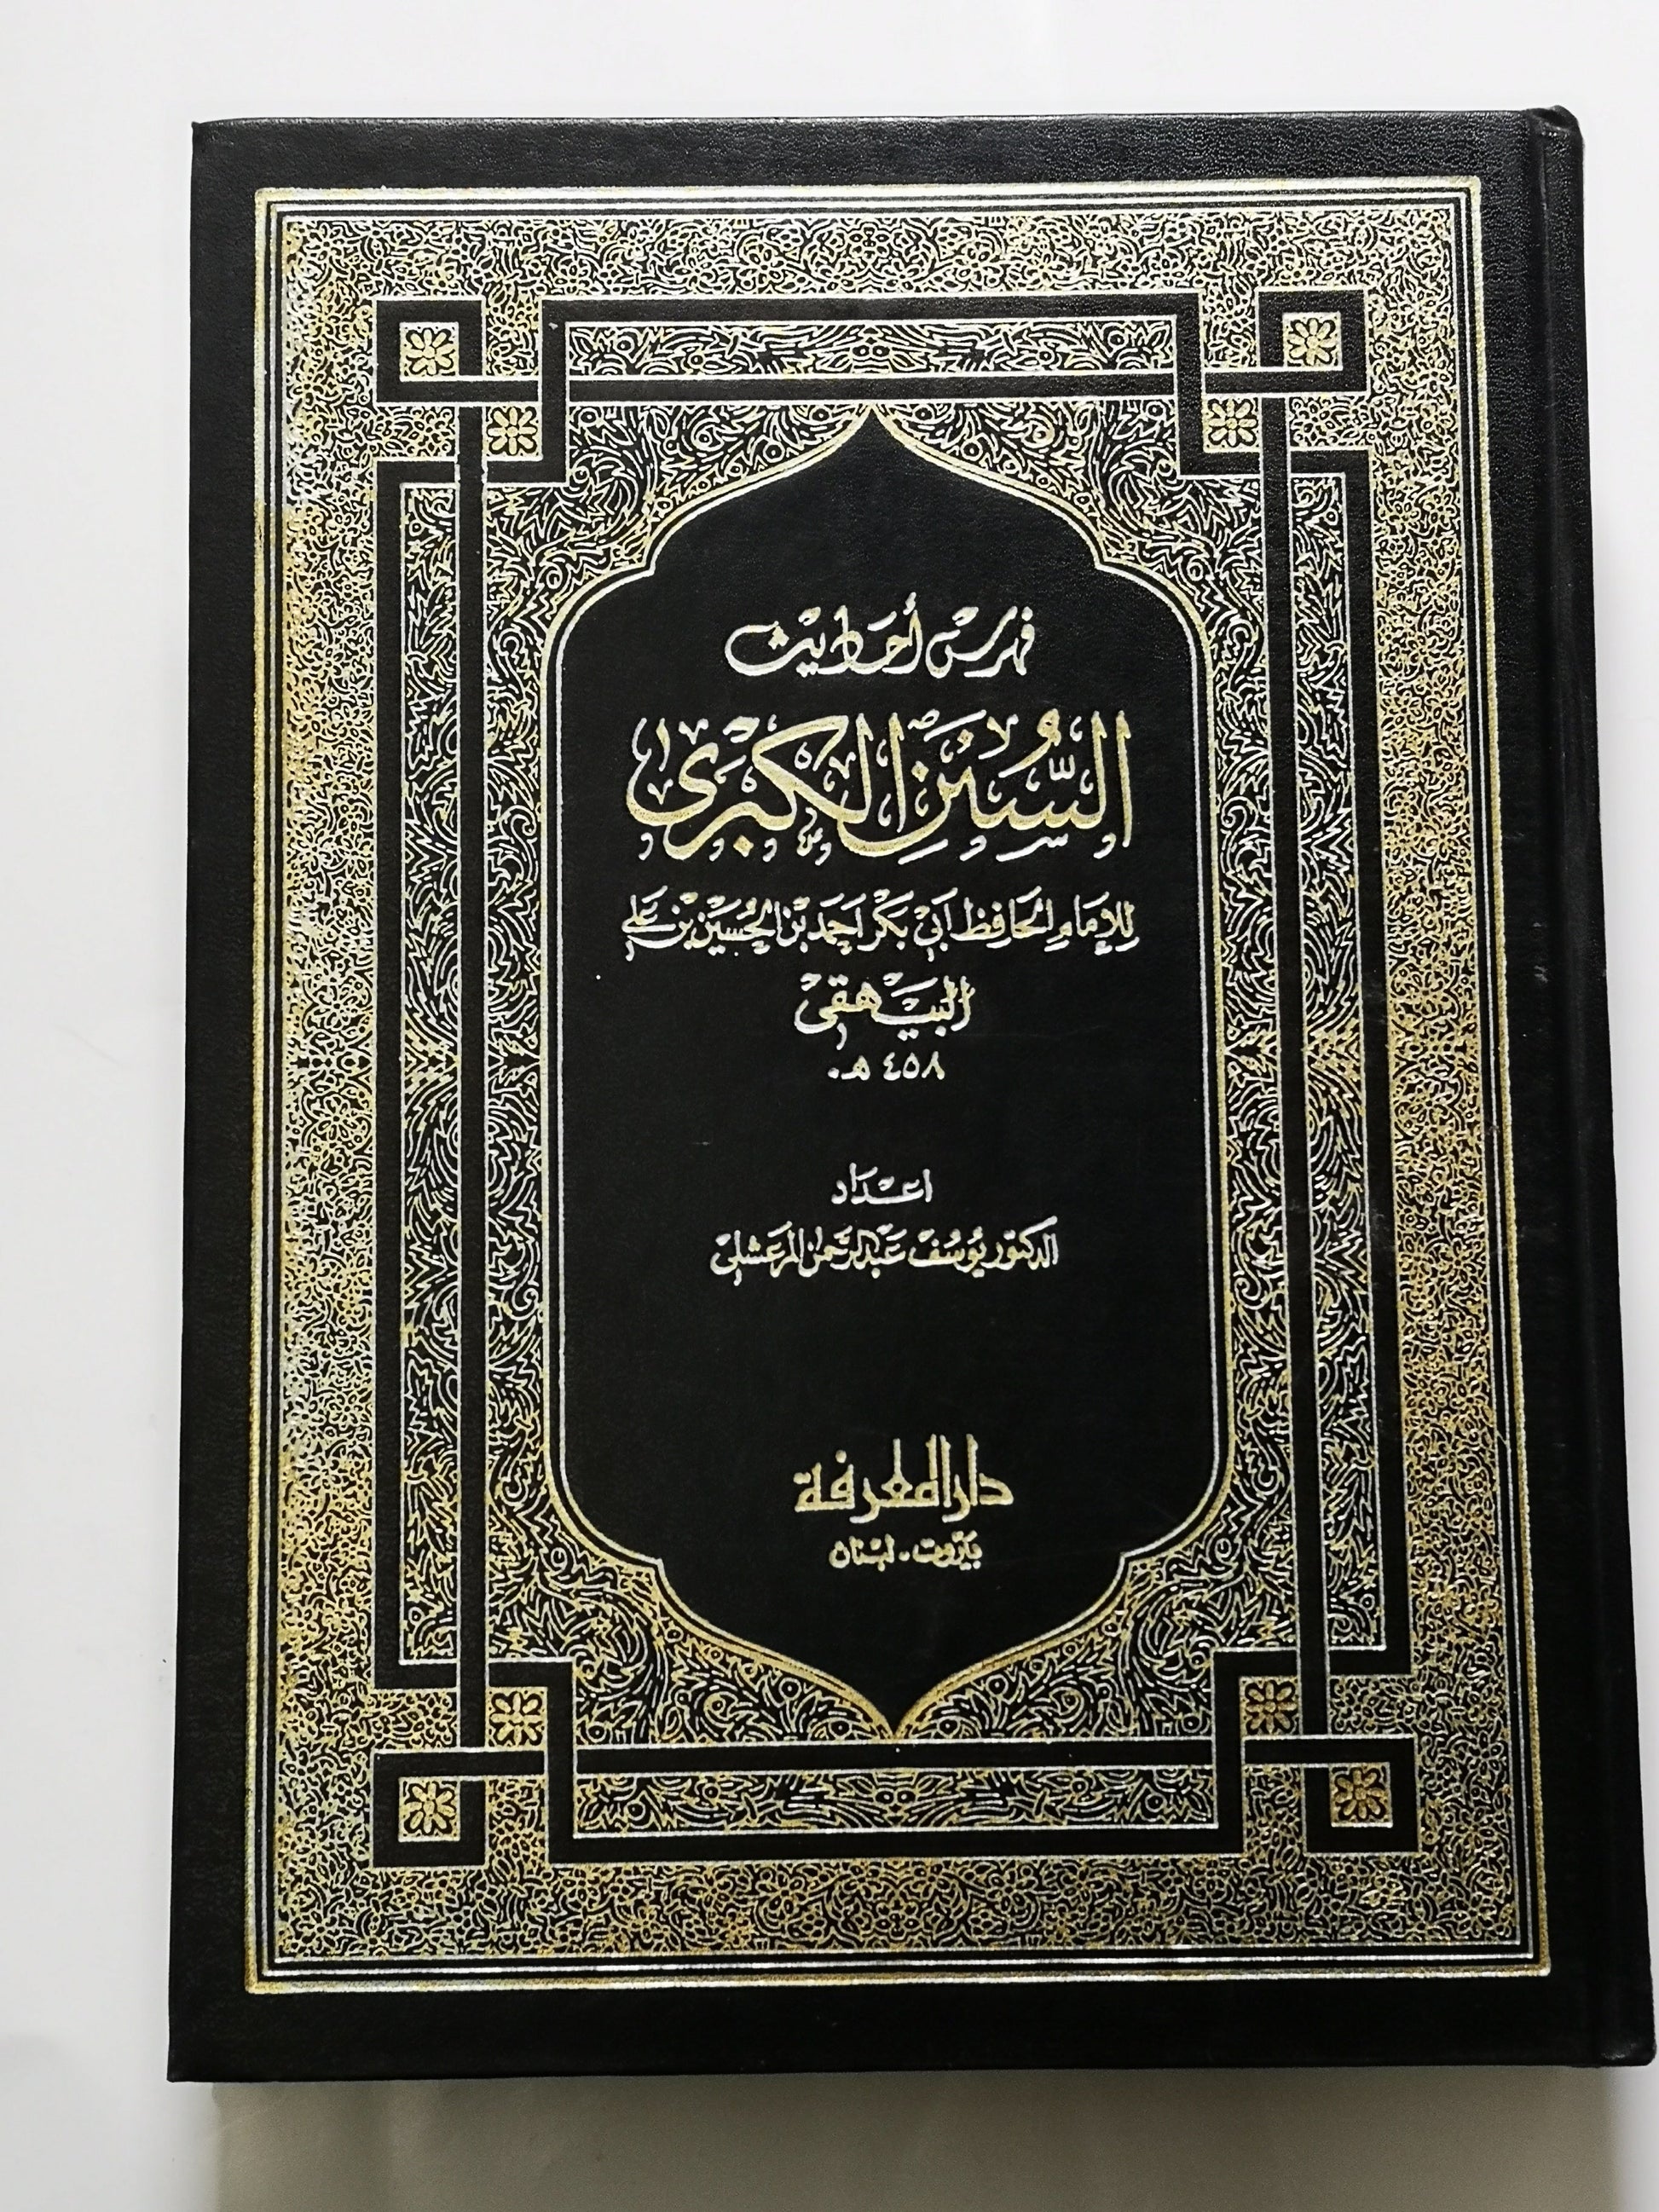 فهرس أحاديث
السُّنَنِ الكُبْرَى
لِلإِمَامِ الحَافِظ أَبِي بَكْر اَحمَد بْن الحُسَيْن بْن عَلي
البَيْهَقي
٤٥٨ هـ.
اعْدَاد
الدكتور يُوسُفْ عَبد الرَّحمٰن المرعَشلي
دار المعرفة
بَيْرُوت - لبْنان